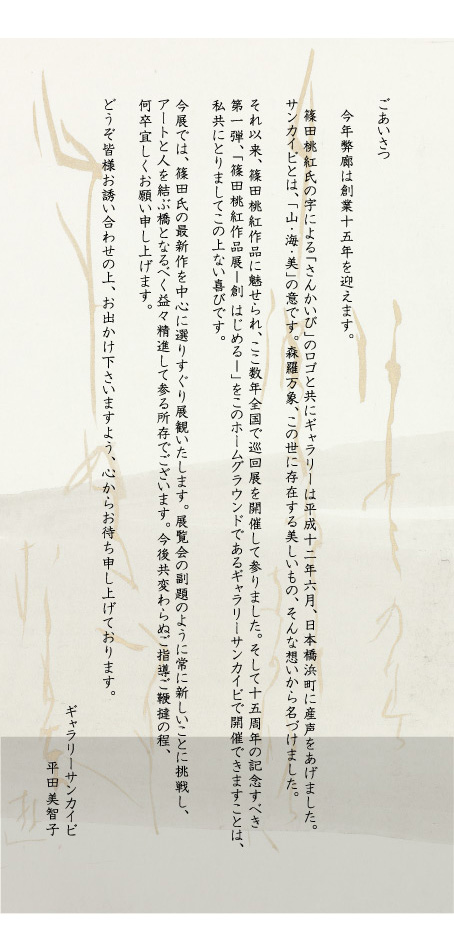 ごあいさつ
今年弊廊は創業十五年を迎えます。
篠田桃紅氏の字による「さんかいび」のロゴと共にギャラリーは平成十二年六月、日本橋浜町に産声をあげました。
サンカイビとは、「山・海・美」の意です。森羅万象、この世に存在する美しいもの、そんな想いから名づけました。
それ以来、篠田桃紅作品に魅せられ、ここ数年全国で巡回展を開催して参りました。そして十五周年の記念すべき
第一弾、「篠田桃紅作品展ー創 はじめるー」をこのホームグラウンドであるギャラリーサンカイビで開催できますことは、
私共にとりましてこの上ない喜びです。
今展では、篠田氏の最新作を中心に選りすぐり展観いたします。展覧会の副題のように常に新しいことに挑戦し、
アートと人を結ぶ橋となるべく益々精進して参る所存でございます。今後共変わらぬご指導ご鞭撻の程、
何卒宜しくお願い申し上げます。
どうぞ皆様お誘い合わせの上、お出かけ下さいますよう、心からお待ち申し上げております。
ギャラリーサンカイビ
平田美智子